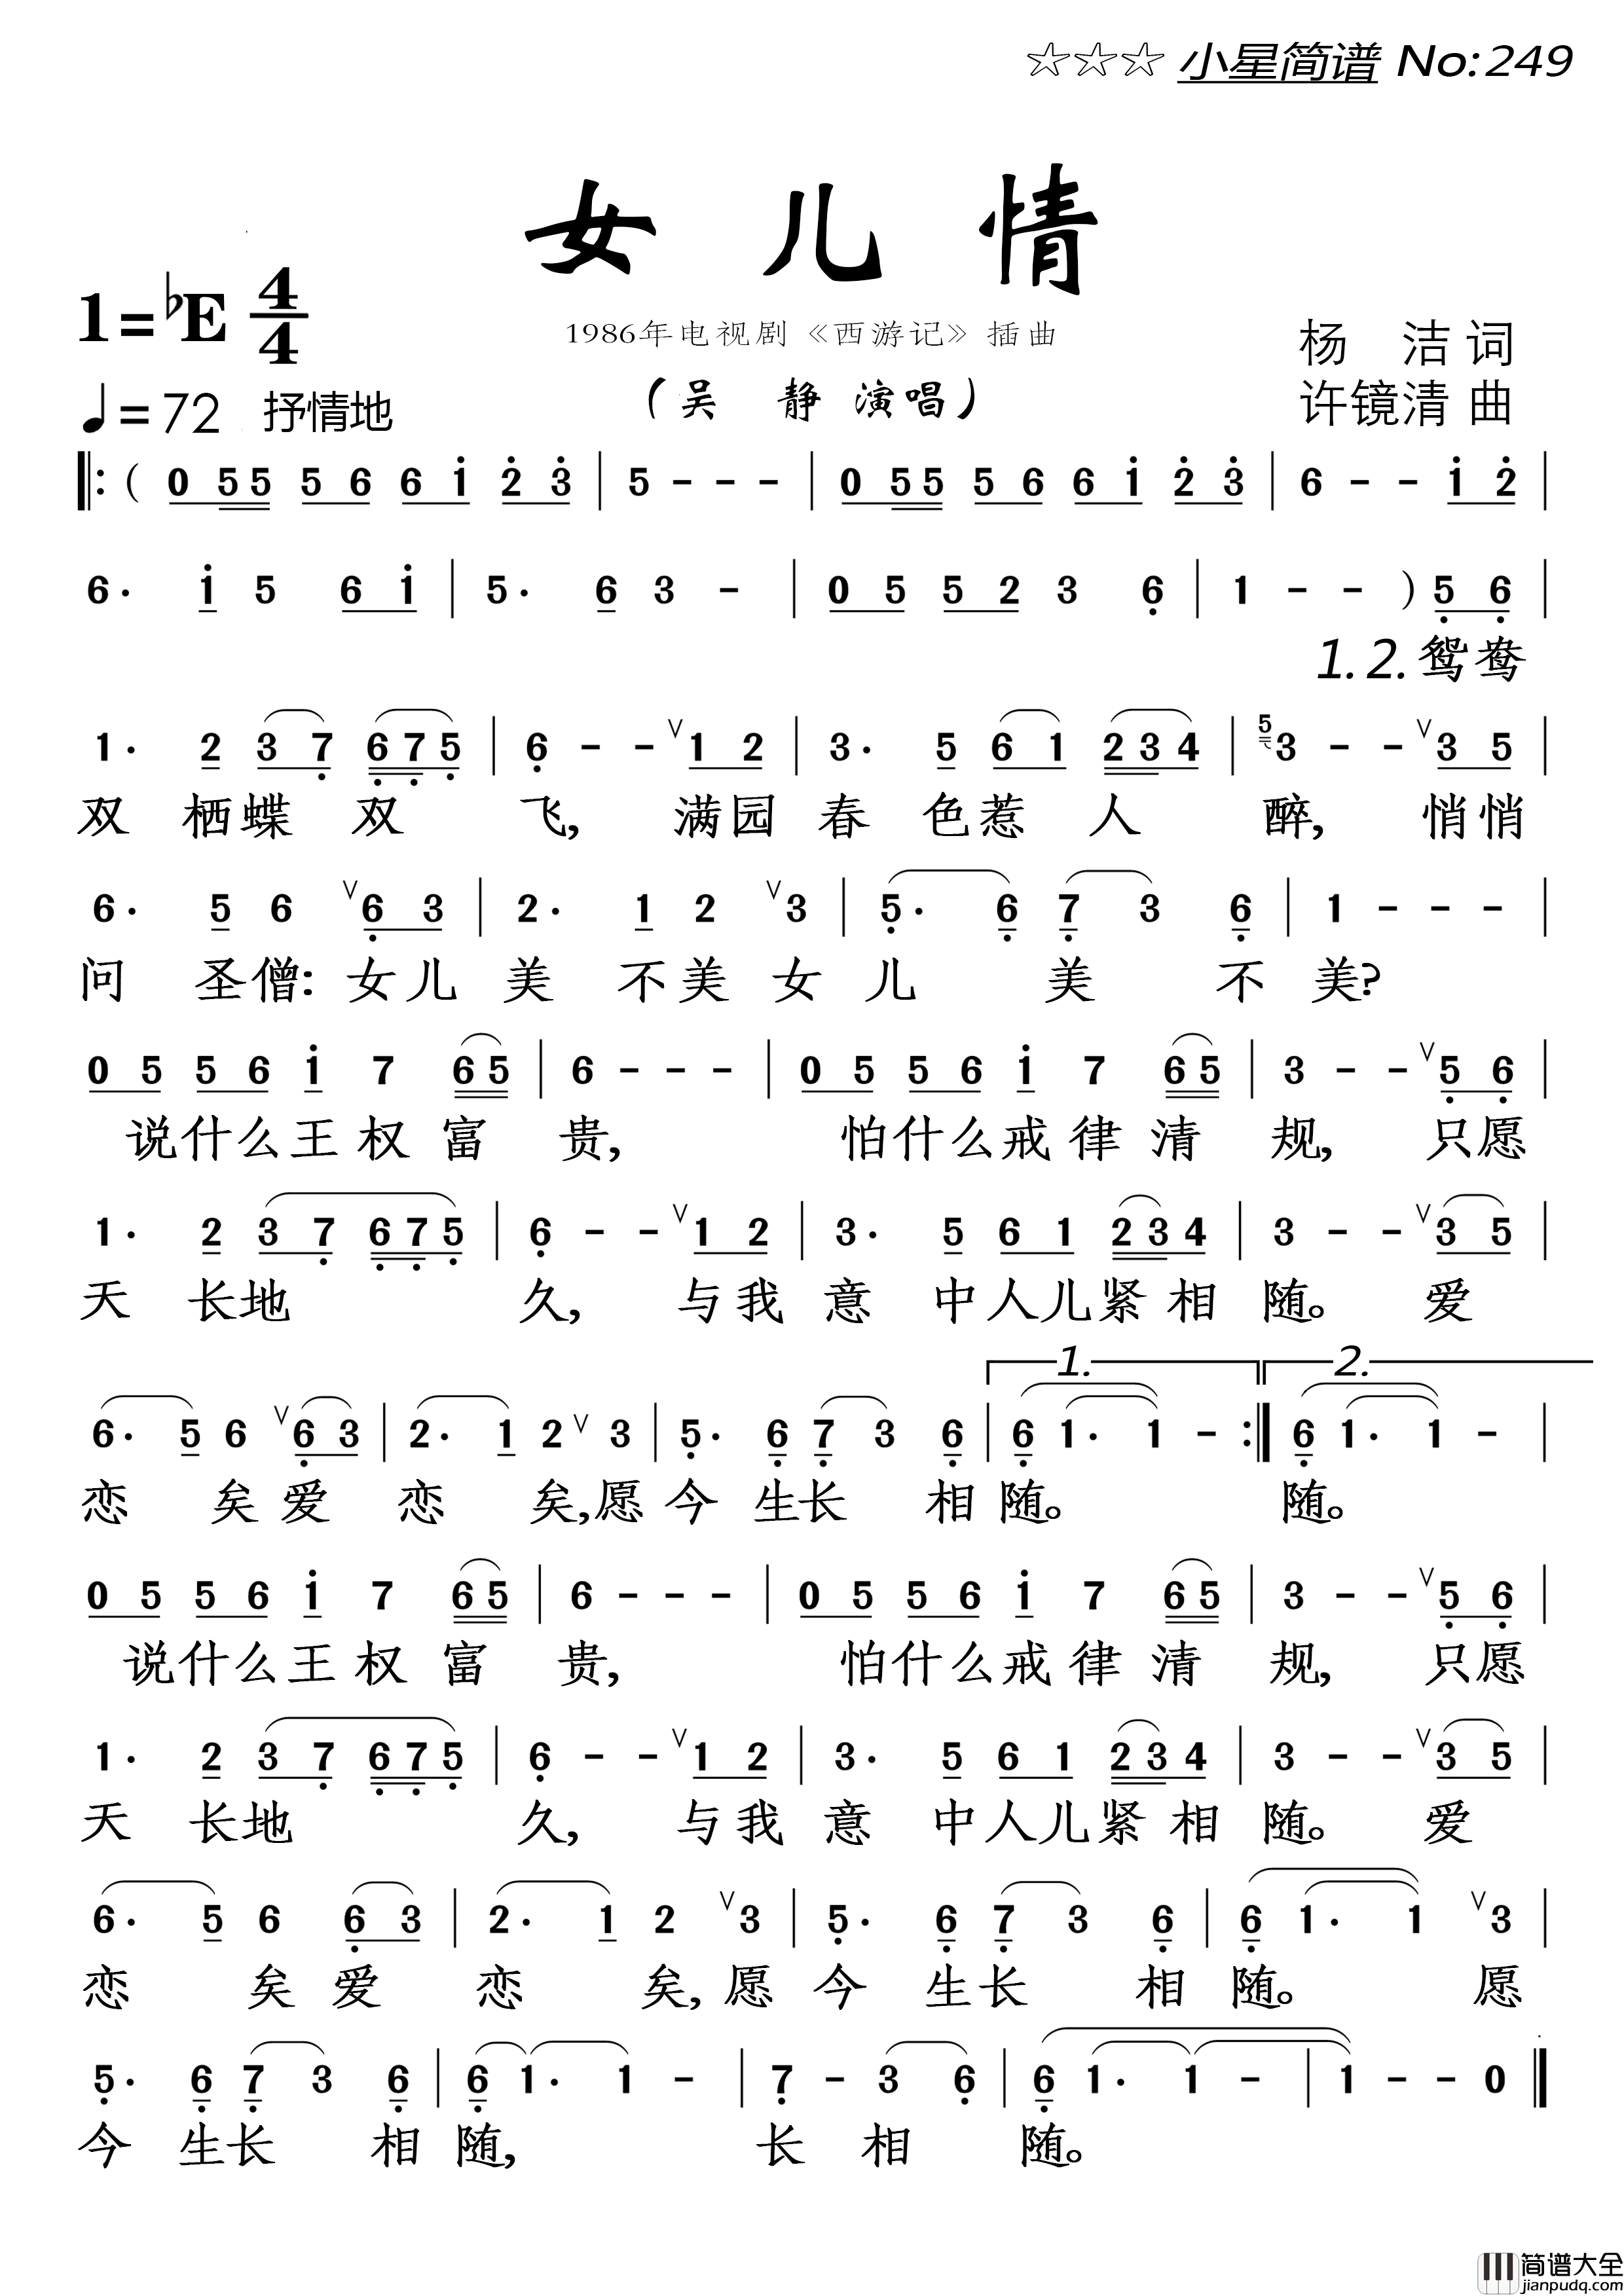 ☆☆☆ 小星简谱 No:249
女 儿 情
1=♭E 4/4
1986年电视剧《西游记》插曲
杨 洁 词
♩=72 抒情地
(吴 静 演唱)
许镜清 曲
‖: ( 0 5 5 5 6 6 1̇ 2̇ 3̇ | 5 - - - | 0 5 5 5 6 6 1̇ 2̇ 3̇ | 6 - - 1̇ 2̇ |
6· 1̇ 5 6 1̇ | 5· 6 3 - | 0 5 5 2 3 6̣ | 1 - - ) 5̣ 6̣ |
1. 2. 鸳鸯
1· 2 3 7̣ 6̣ 7̣ 5̣ | 6̣ - - ∨ 1 2 | 3· 5 6 1 2 3 4 | 5 3 - - ∨ 3 5 |
双 栖蝶 双 飞, 满园 春 色惹 人 醉, 悄悄
6· 5 6 ∨ 6̣ 3 | 2· 1 2 ∨ 3 | 5̣· 6̣ 7̣ 3 6̣ | 1 - - - |
问 圣僧: 女儿 美 不美 女 儿 美 不 美?
0 5 5 6 1̇ 7 6 5 | 6 - - - | 0 5 5 6 1̇ 7 6 5 | 3 - - ∨ 5̣ 6̣ |
说什么王 权 富 贵, 怕什么戒 律 清 规, 只愿
1· 2 3 7̣ 6̣ 7̣ 5̣ | 6̣ - - ∨ 1 2 | 3· 5 6 1 2 3 4 | 3 - - ∨ 3 5 |
天 长地 久, 与我 意 中人儿紧 相 随。 爱
1. 2.
6· 5 6 ∨ 6̣ 3 | 2· 1 2 ∨ 3 | 5̣· 6̣ 7̣ 3 6̣ | 6̣ 1· 1 - :‖ 6̣ 1· 1 - |
恋 矣爱 恋 矣,愿 今 生长 相 随。 随。
0 5 5 6 1̇ 7 6 5 | 6 - - - | 0 5 5 6 1̇ 7 6 5 | 3 - - ∨ 5̣ 6̣ |
说什么王 权 富 贵, 怕什么戒 律 清 规, 只愿
1· 2 3 7̣ 6̣ 7̣ 5̣ | 6̣ - - ∨ 1 2 | 3· 5 6 1 2 3 4 | 3 - - ∨ 3 5 |
天 长地 久, 与我 意 中人儿紧 相 随。 爱
6· 5 6 6̣ 3 | 2· 1 2 ∨ 3 | 5̣· 6̣ 7̣ 3 6̣ | 6̣ 1· 1 ∨ 3 |
恋 矣 爱 恋 矣, 愿 今 生长 相 随。 愿
5̣· 6̣ 7̣ 3 6̣ | 6̣ 1· 1 - | 7̣ - 3 6̣ | 6̣ 1· 1 - | 1 - - 0 ‖
今 生长 相 随, 长 相 随。
简谱大全
jianpudq.com